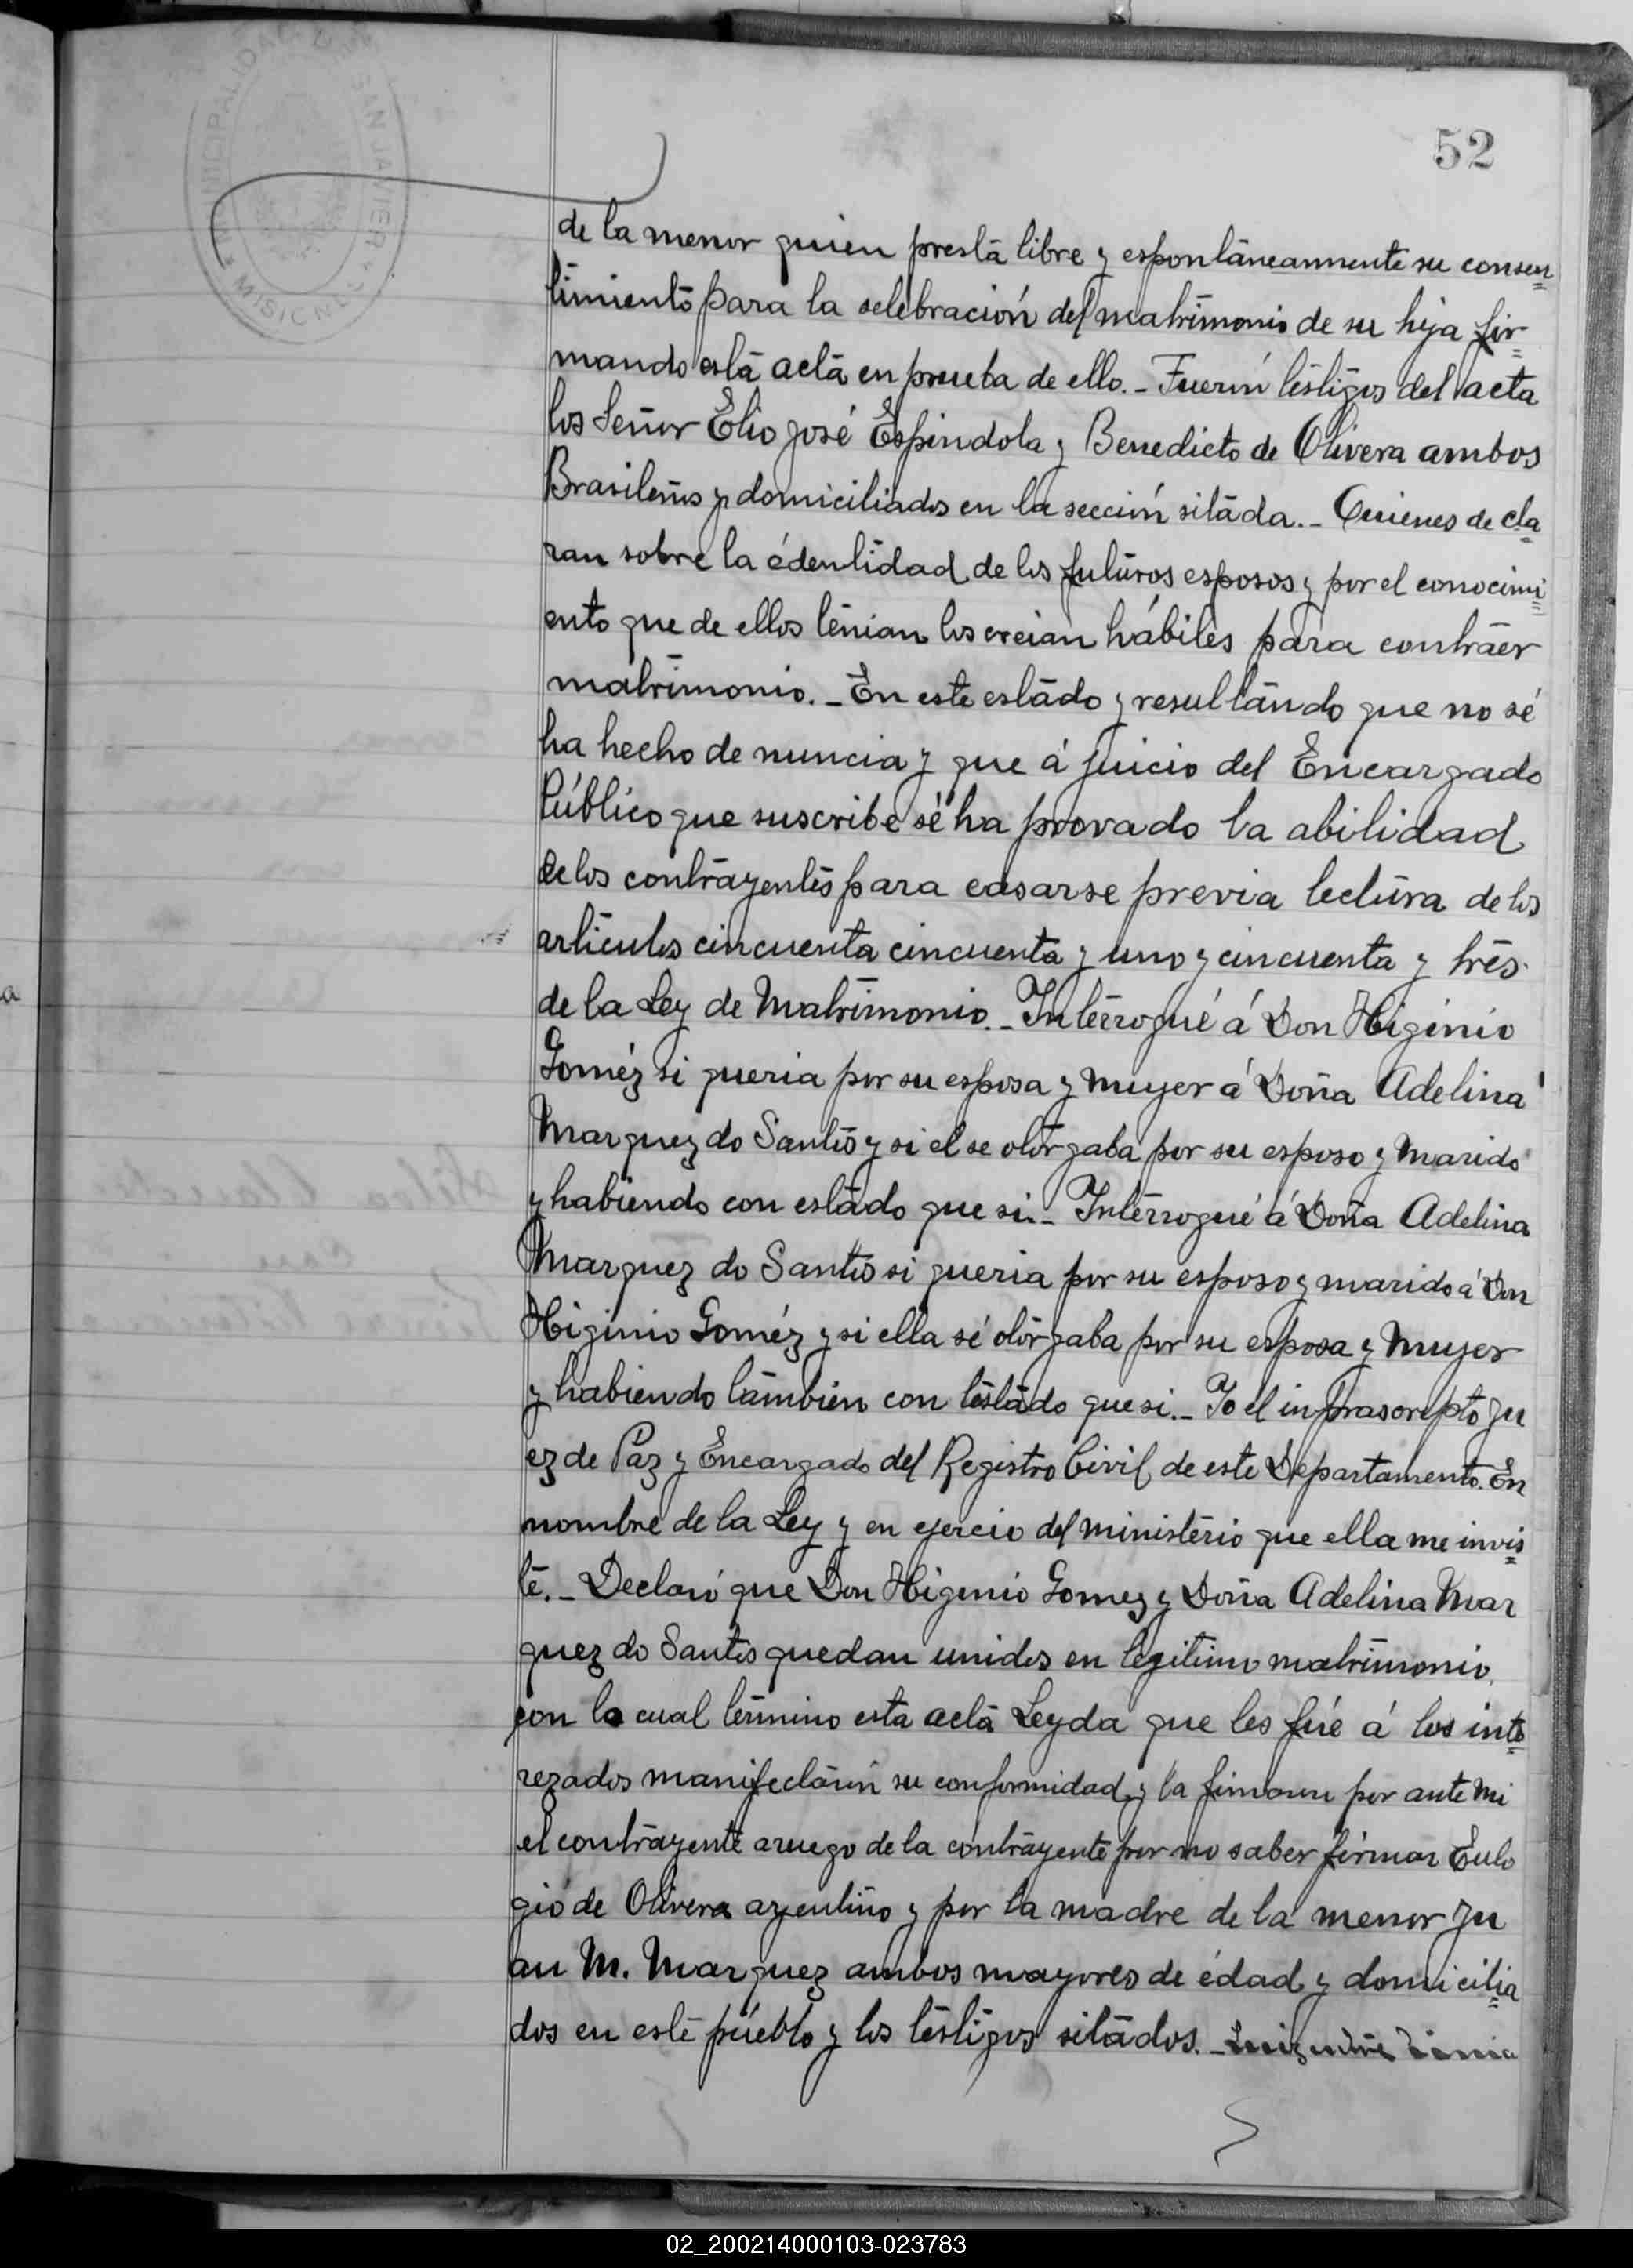 52
MUNICIPALIDAD SAN JAVIER MISIONES
de la menor quien presta libre y espontáneanmente su consen
timiento para la selebración del matrimonio de su hija fir
mando esta acta en prueba de ello.- Fuerón testigos del acta
los Señor Elio José Espindola y Benedicto de Olivera ambos
Brasileños y domiciliados en la sección sitada.- Quienes de cla
ran sobre la édentidad de los futuros esposos y por el conocimi
ento que de ellos tenian los creian hábiles para contraer
matrimonio.- En este estado y resultando que no sé
ha hecho de nuncia y que á juicio del Encargado
Público que suscribe sé ha provado la abilidad
de los contrayentes para casarse previa lectura de los
articulos cincuenta cincuenta y uno y cincuenta y tres
de la Ley de Matrimonio.- Interrogué á Don Higinio
Goméz si queria por su esposa y muyer á Doña Adelina
Marquez do Santos y si el se otorgaba por su esposo y marido
y habiendo con estado que si.- Interrogué á Doña Adelina
Marquez do Santos si queria por su esposo y marido á Don
Higinio Goméz y si ella sé otorgaba por su esposa y Muyer
y habiendo tambien con testado que si.- Yo el infrascripto Ju
ez de Paz y Encargado del Registro Civil de este Departamento. En
nombre de la Ley y en ejercio del ministerio que ella me invis
te.- Declaró que Don Higinio Gomez y Doña Adelina Mar
quez do Santos quedan unidos en legitimo matrimonio,
con lo cual término esta acta Leyda que les fúe á los inte
rezados manifectarón su conformidad y la fimaron por ante Mi
el contrayente aruego de la contrayente por no saber firmar Eulo
gió de Olivera argentino y por la madre de la menor Ju
an M. Marquez ambos mayores de édad y domicilia
dos en esté puéblo y los téstigos sitados.-
02_200214000103-023783